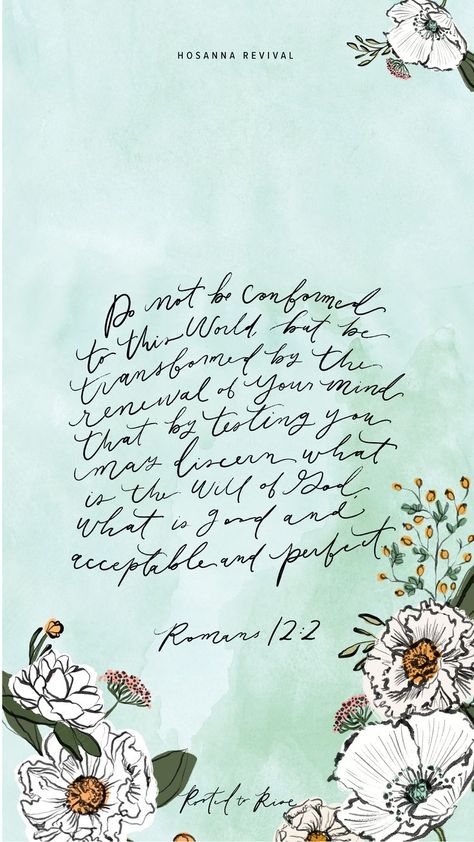 HOSANNA REVIVAL
Do not be conformed
to this World, but be
transformed by the
renewal of your mind
that by testing you
may discern what
is the will of God,
what is good and
acceptable and perfect
Romans 12:2
Rooted & Rise